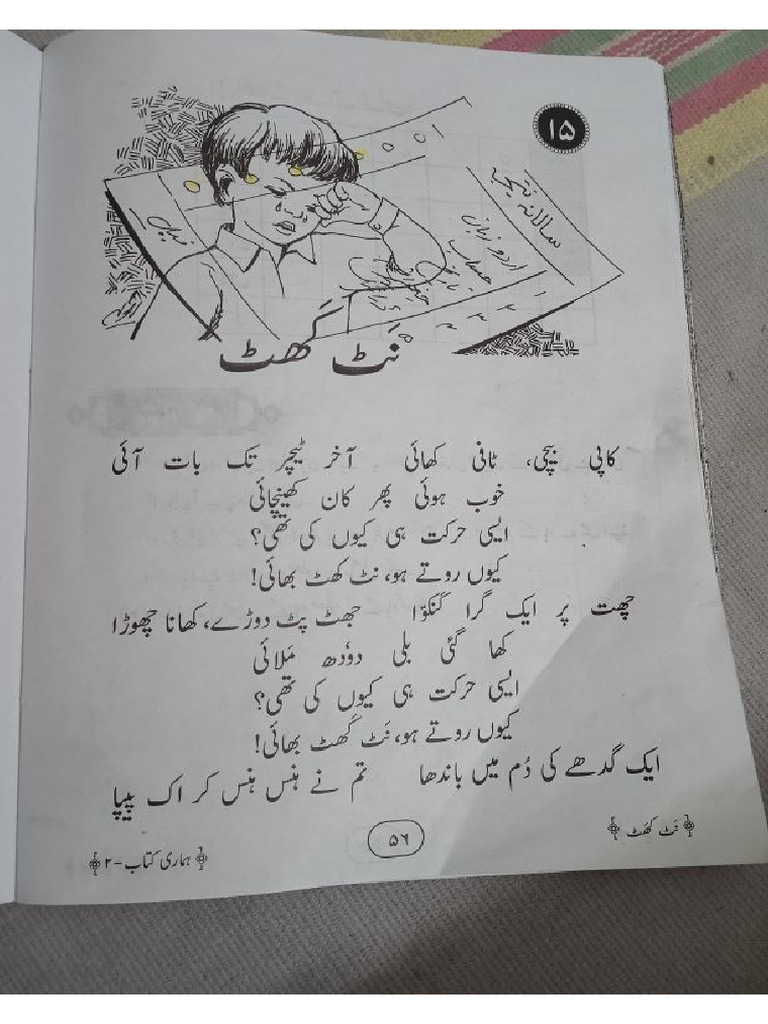 ۱۵
سالانہ نتیجہ
اردو زبانی
حساب
نَٹ کھَٹ
کاپی بیچی، ٹافی کھائی آخر ٹیچر تک بات آئی
خوب ہوئی پھر کان کھینچائی
ایسی حرکت ہی کیوں کی تھی؟
کیوں روتے ہو، نٹ کھٹ بھائی!
چھت پر ایک گرا کَنکوّا جھٹ پٹ دوڑے، کھانا چھوڑا
کھا گئی بلی دوٗدھ مَلائی
ایسی حرکت ہی کیوں کی تھی؟
کیوں روتے ہو، نَٹ کَھٹ بھائی!
ایک گدھے کی دُم میں باندھا تم نے ہنس ہنس کر اک پیپا
نَٹ کھَٹ
۵۶
ہماری کتاب-۲